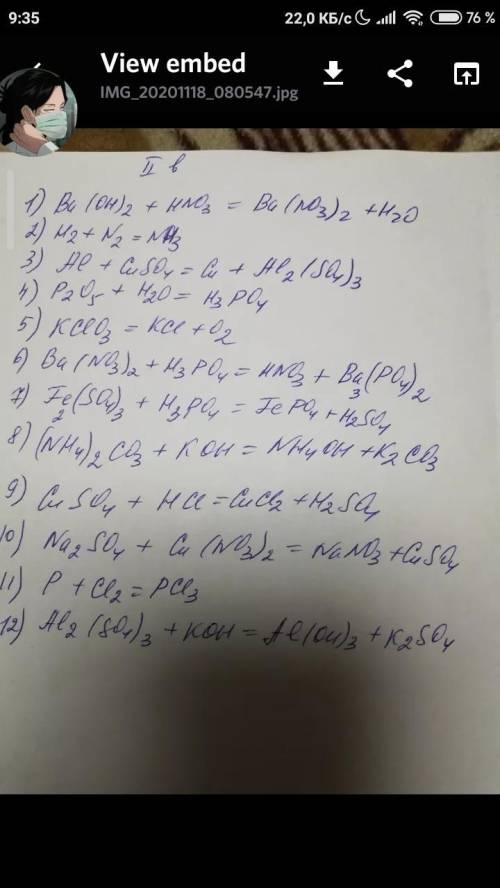 9:35
22,0 КБ/с
76 %
View embed
IMG_20201118_080547.jpg
II в
1) Ba(OH)2 + HNO3 = Ba(NO3)2 + H2O
2) H2 + N2 = NH3
3) Al + CuSO4 = Cu + Al2(SO4)3
4) P2O5 + H2O = H3PO4
5) KClO3 = KCl + O2
6) Ba(NO3)2 + H3PO4 = HNO3 + Ba3(PO4)2
7) Fe2(SO4)3 + H3PO4 = FePO4 + H2SO4
8) (NH4)2CO3 + KOH = NH4OH + K2CO3
9) CuSO4 + HCl = CuCl2 + H2SO4
10) Na2SO4 + Cu(NO3)2 = NaNO3 + CuSO4
11) P + Cl2 = PCl3
12) Al2(SO4)3 + KOH = Al(OH)3 + K2SO4